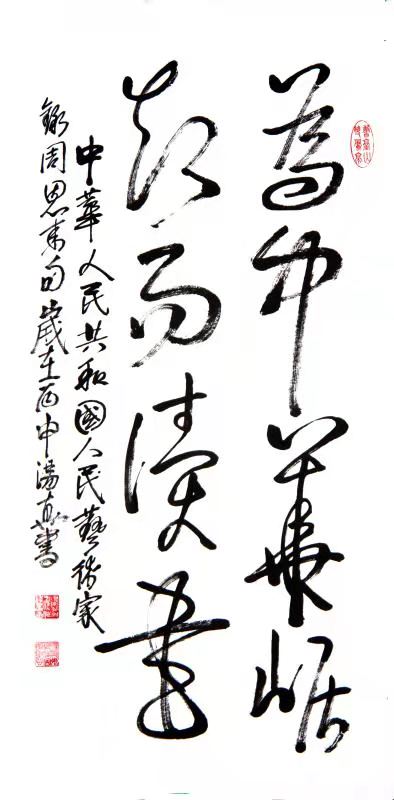 為中華崛
起而讀書
中華人民共和國人民藝術家
錄周恩來句歲在丙申湯書